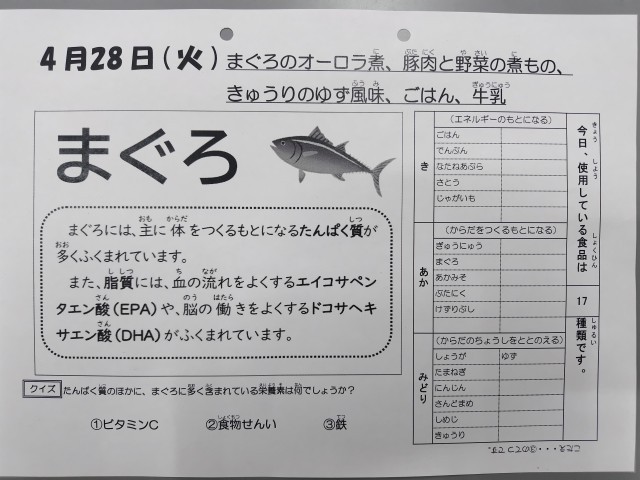 4月28日(火)まぐろのオーロラ煮、豚肉と野菜の煮もの、
きゅうりのゆず風味、ごはん、牛乳
まぐろ
まぐろには、主に体をつくるもとになるたんぱく質が
多くふくまれています。
また、脂質には、血の流れをよくするエイコサペン
タエン酸(EPA)や、脳の働きをよくするドコサヘキ
サエン酸(DHA)がふくまれています。
クイズ たんぱく質のほかに、まぐろに多く含まれている栄養素は何でしょうか?
①ビタミンC ②食物せんい ③鉄
今日、使用している食品は
17
種類です。
き
(エネルギーのもとになる)
ごはん
でんぷん
なたねあぶら
さとう
じゃがいも
あか
(からだをつくるもとになる)
ぎゅうにゅう
まぐろ
あかみそ
ぶたにく
けずりぶし
みどり
(からだのちょうしをととのえる)
しょうが ゆず
たまねぎ
にんじん
さんどまめ
しめじ
きゅうり
こたえ・・・③のてつです。